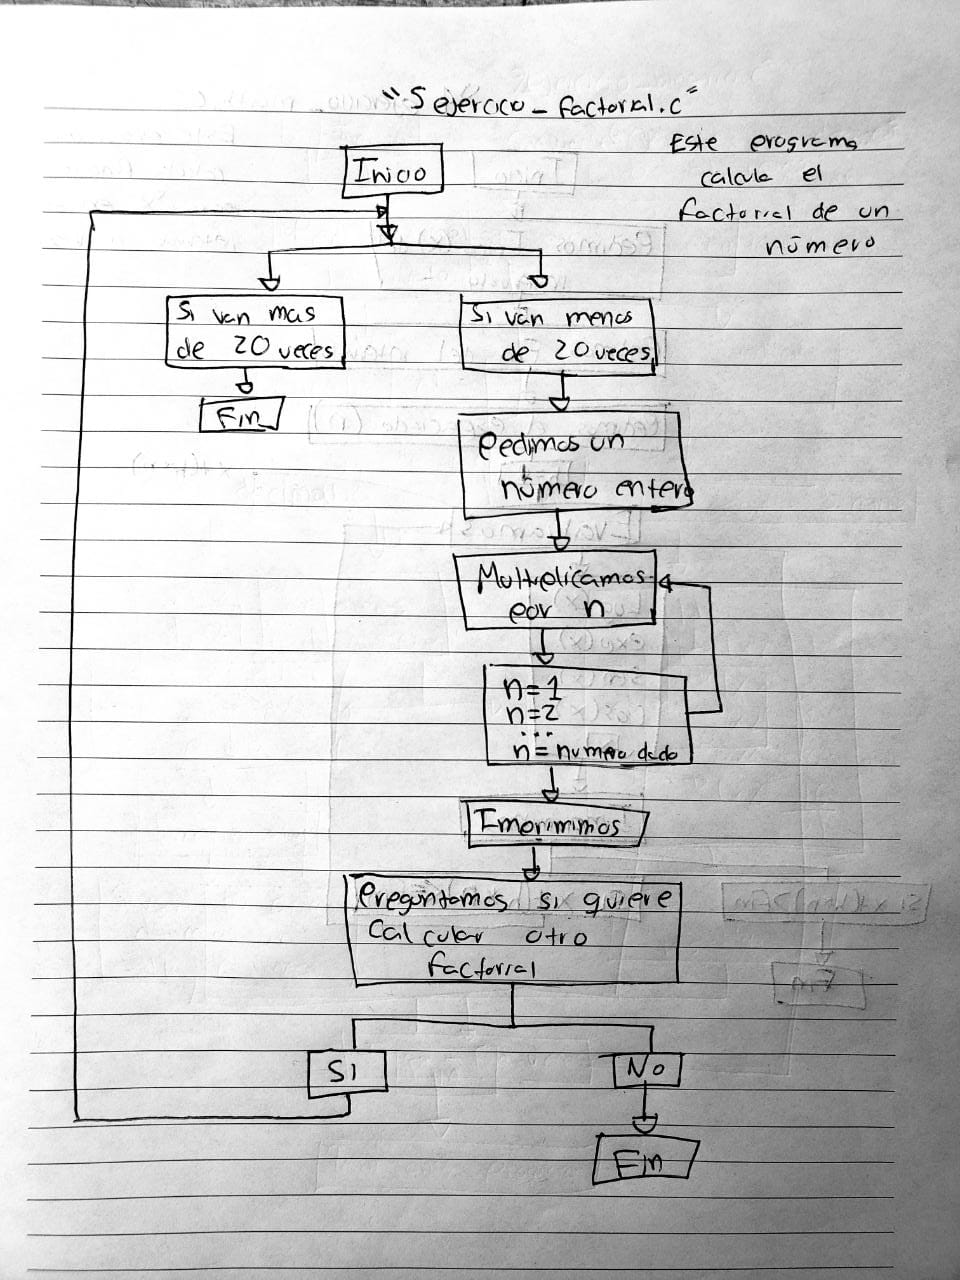 "5 ejercicio_factorial.c"
Este programa
calcula el
factorial de un
número
Inicio
Si van mas
de 20 veces
Fin
Si van menos
de 20 veces
Pedimos un
número entero
Multiplicamos
por n
n=1
n=2
...
n=numero dado
Imprimimos
Preguntamos si quiere
Calcular otro
factorial
Si
No
Fin